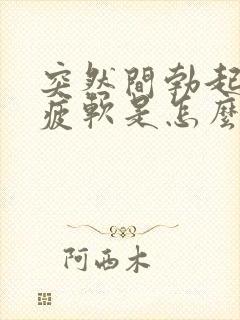 突然間勃起
疲軟是怎麼
阿西木